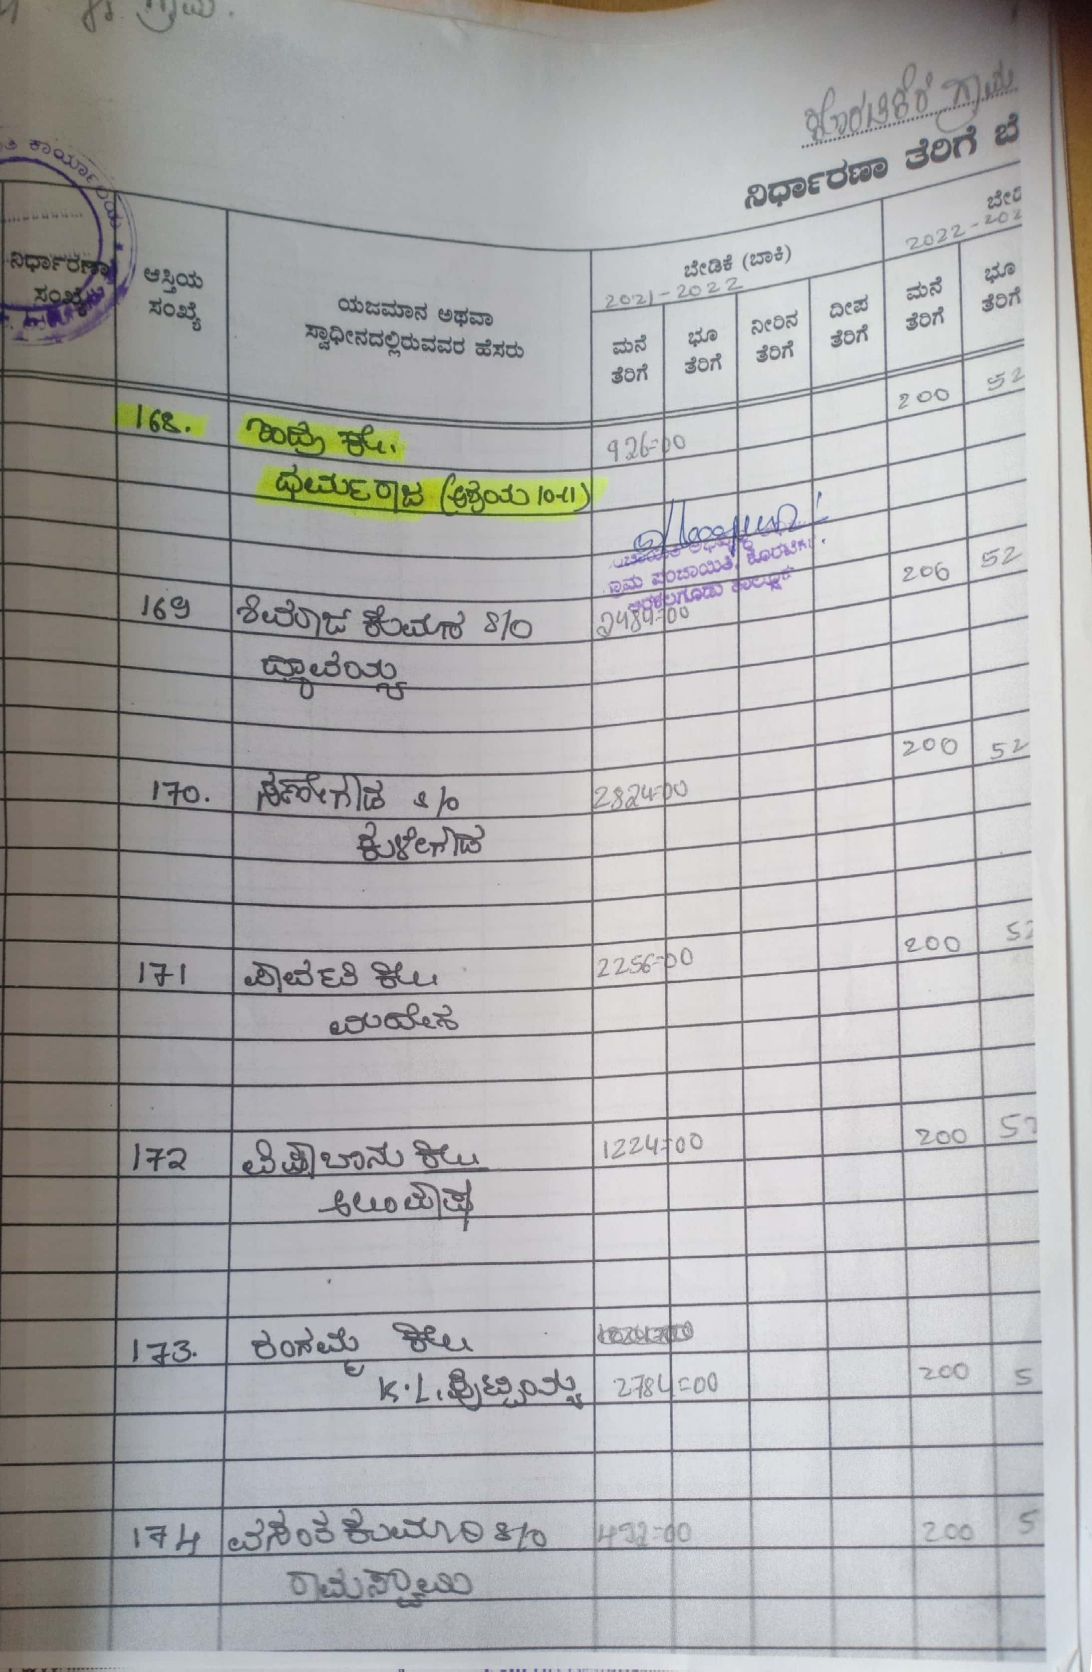 ಗ್ರಾಮ.
ಗ್ರಾಮ
ನಿರ್ಧಾರಣಾ ತೆರಿಗೆ ಬೆ
ಕಾರ್ಯಾಲಯ
ನಿರ್ಧಾರಣಾ ಸಂಖ್ಯೆ
ಆಸ್ತಿಯ ಸಂಖ್ಯೆ
ಯಜಮಾನ ಅಥವಾ
ಸ್ವಾಧೀನದಲ್ಲಿರುವವರ ಹೆಸರು
ಬೇಡಿಕೆ (ಬಾಕಿ)
2021-2022
ಮನೆ ತೆರಿಗೆ
ಭೂ ತೆರಿಗೆ
ನೀರಿನ ತೆರಿಗೆ
ದೀಪ ತೆರಿಗೆ
ಬೇಡಿ
2022-202
ಮನೆ ತೆರಿಗೆ
ಭೂ ತೆರಿಗೆ
168. ಕೋ. 926=00 200 52
ಧರ್ಮರಾಜ (ಆಶ್ರಯ 10-11)
ಗ್ರಾಮ ಪಂಚಾಯಿತಿ,
ಅರಕಲಗೂಡು ತಾಲ್ಲೂಕು
169 ಶಿವರಾಜ ಕುಮಾರ S/O 2484=00 206 52
ದ್ಯಾವಯ್ಯ
170. ಸಣ್ಣೇಗೌಡ S/O 2824=00 200 52
ಕುಳ್ಳೇಗೌಡ
171 ಪಾರ್ವತಿ ಕೋಂ 2256=00 200 52
ಮಹೇಶ
172 ಕೋಂ 1224=00 200 52
173. ರಂಗಮ್ಮ ಕೋಂ
K.L. ಪುಟ್ಟಯ್ಯ 2784=00 200 5
174 ವಸಂತ ಕುಮಾರಿ S/O 492=00 200 5
ರಾಮಸ್ವಾಮಿ